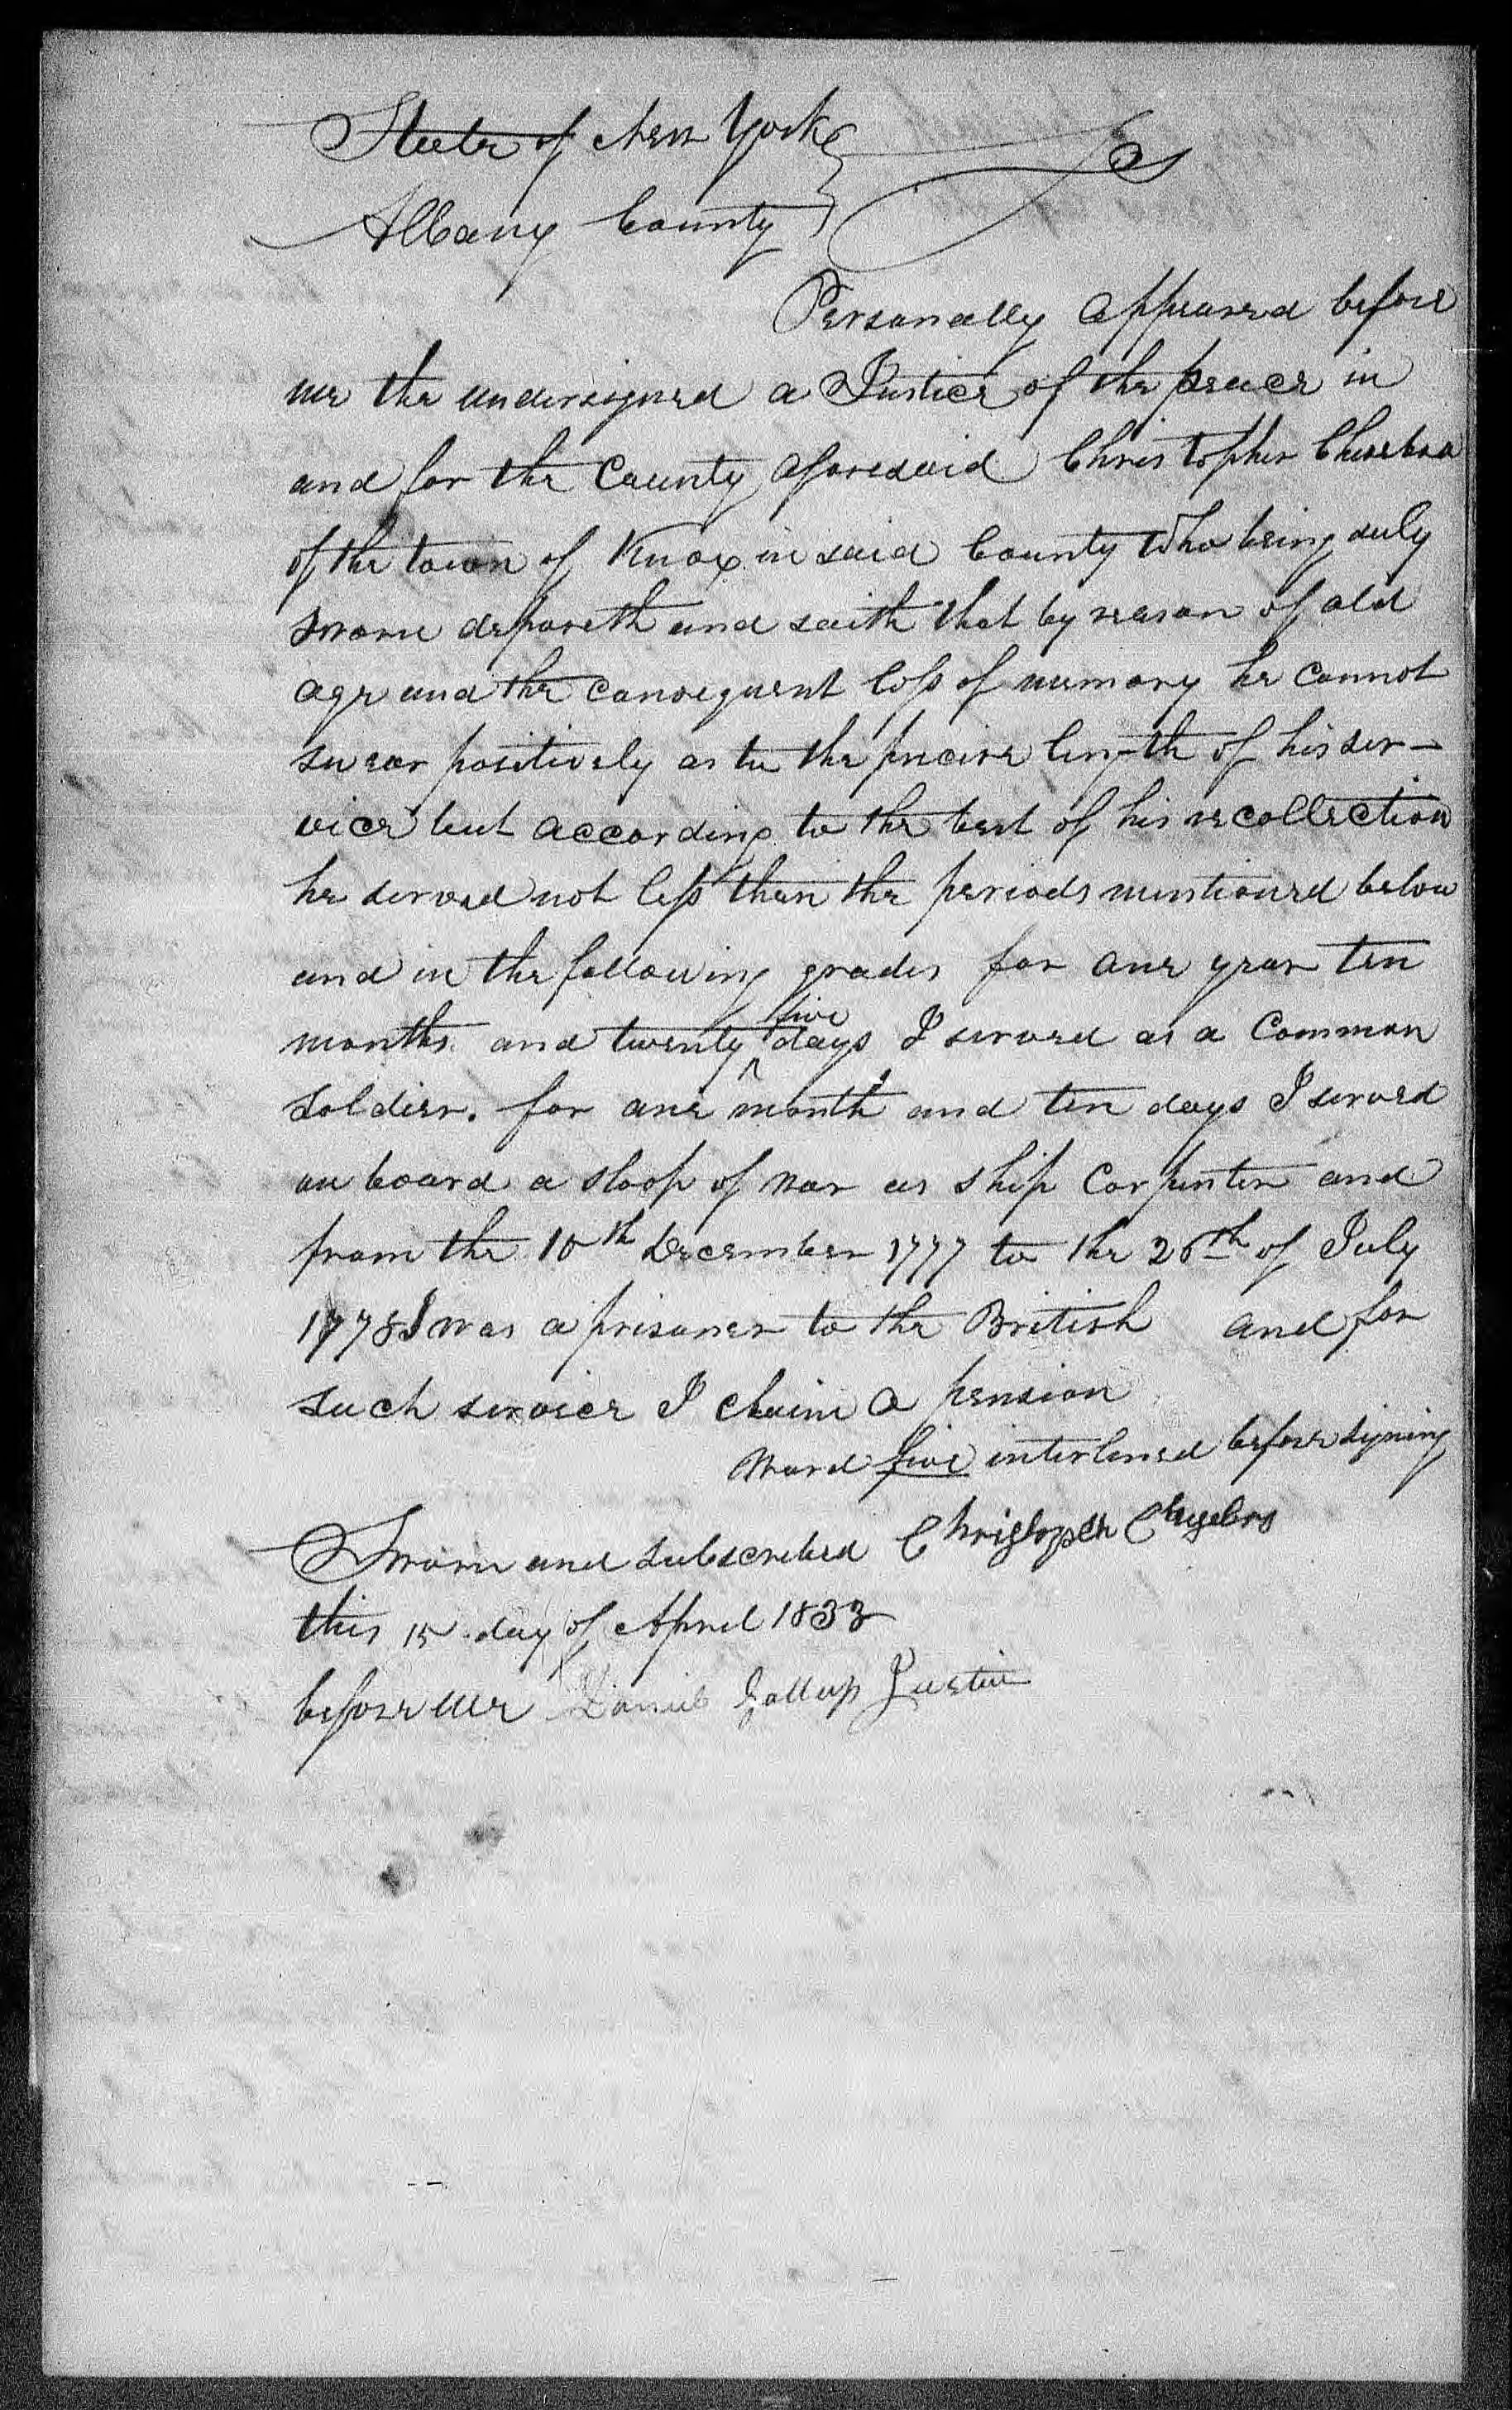 State of New York } ss
Albany County }
Personally appeared before
me the undersigned a Justice of the peace in
and for the County aforesaid Christopher Chesebro
of the town of Knox in said County Who being duly
sworn deposeth and saith that by reason of old
age and the consequent loss of memory he cannot
swear positively as to the precise length of his ser-
vice but according to the best of his recollection
he served not less than the periods mentioned below
and in the following grades for one year ten
months and twenty ^five days I served as a Common
Soldier. for one month and ten days I served
on board a sloop of war as ship Carpenter and
from the 10th December 1777 to the 26th of July
1778 I was a prisoner to the British and for
such service I claim a pension
Word five interlined before signing
Sworn and subscribed Christopher Chesebro
this 15 day of April 1833
before me Daniel Gallup Justice